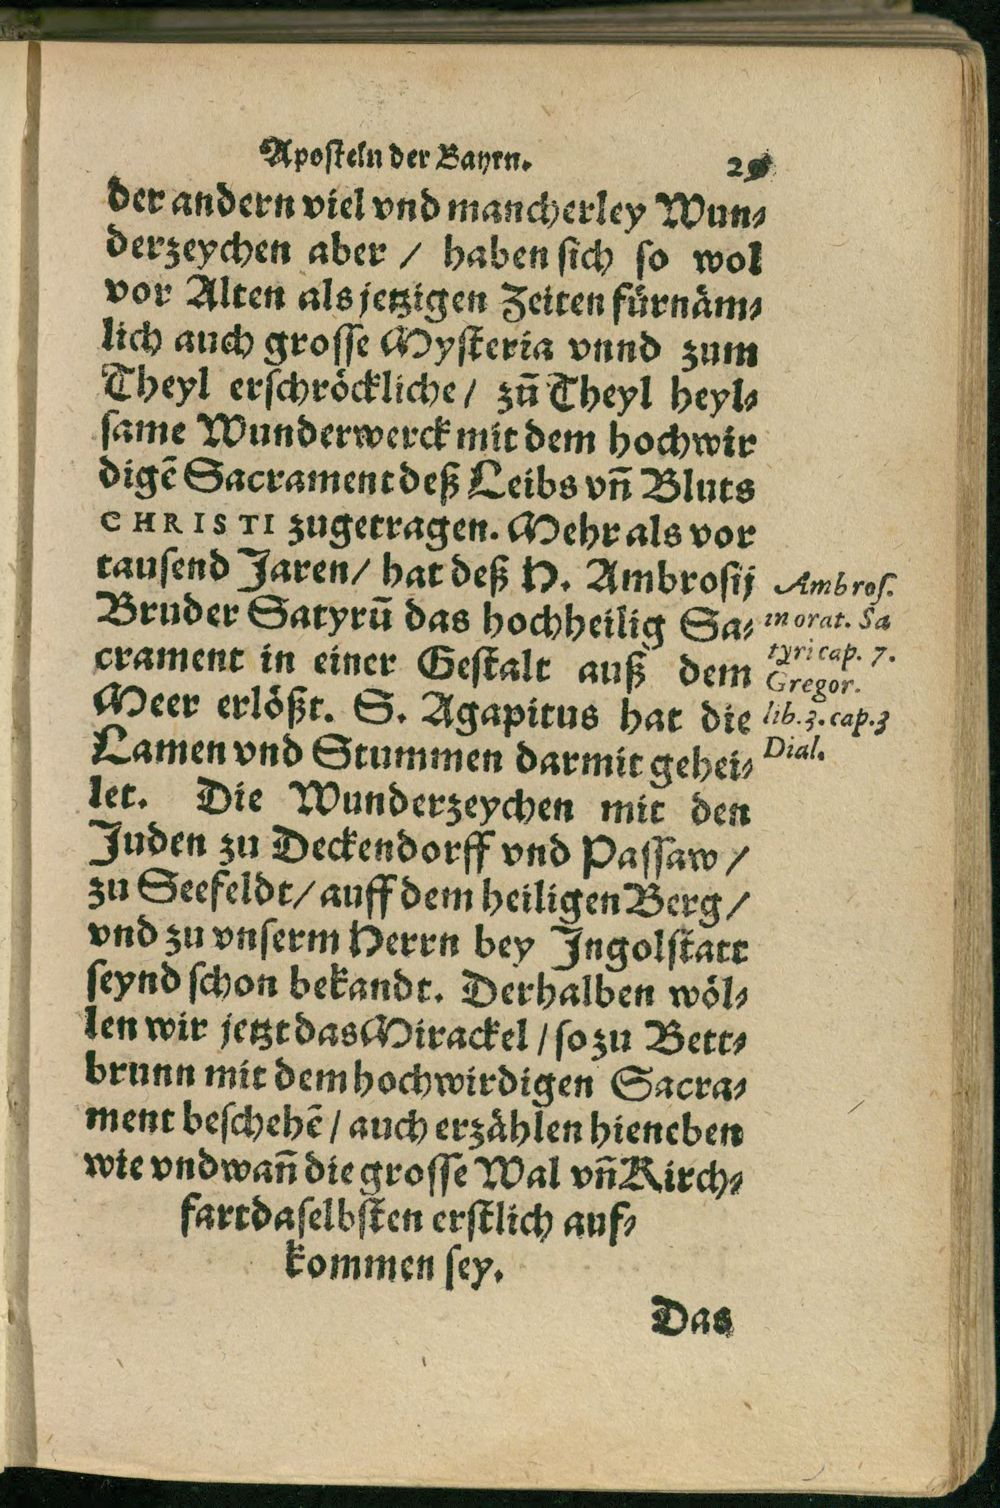 Aposteln der Bayrn.
der andern viel vnd mancherley Wun⸗
derzeychen aber / haben sich so wol
vor Alten als jetzigen Zeiten fürnäm⸗
lich auch grosse Mysteria vnnd zum
Theyl erschröckliche / zũ Theyl heyl⸗
same Wunderwerck mit dem hochwir
digẽ Sacrament deß Leibs vñ Bluts
CHRISTI zugetragen. Mehr als vor
tausend Jaren / hat deß H. Ambrosij
Bruder Satyrũ das hochheilig Sa⸗
crament in einer Gestalt auß dem
Meer erlößt. S. Agapitus hat die
Lamen vnd Stummen darmit gehei⸗
let. Die Wunderzeychen mit den
Juden zu Deckendorff vnd Passaw /
zu Seefeldt / auff dem heiligen Berg /
vnd zu vnserm Herrn bey Ingolstatt
seynd schon bekandt. Derhalben wöl⸗
len wir jetzt das Mirackel / so zu Bett⸗
brunn mit dem hochwirdigen Sacra⸗
ment beschehẽ / auch erzählen hieneben
wie vnd wañ die grosse Wal vñ Kirch⸗
fart daselbsten erstlich auf⸗
kommen sey.
Das
Ambros.
in orat. Sa
tyri cap. 7.
Gregor.
lib. 3. cap. 3
Dial.